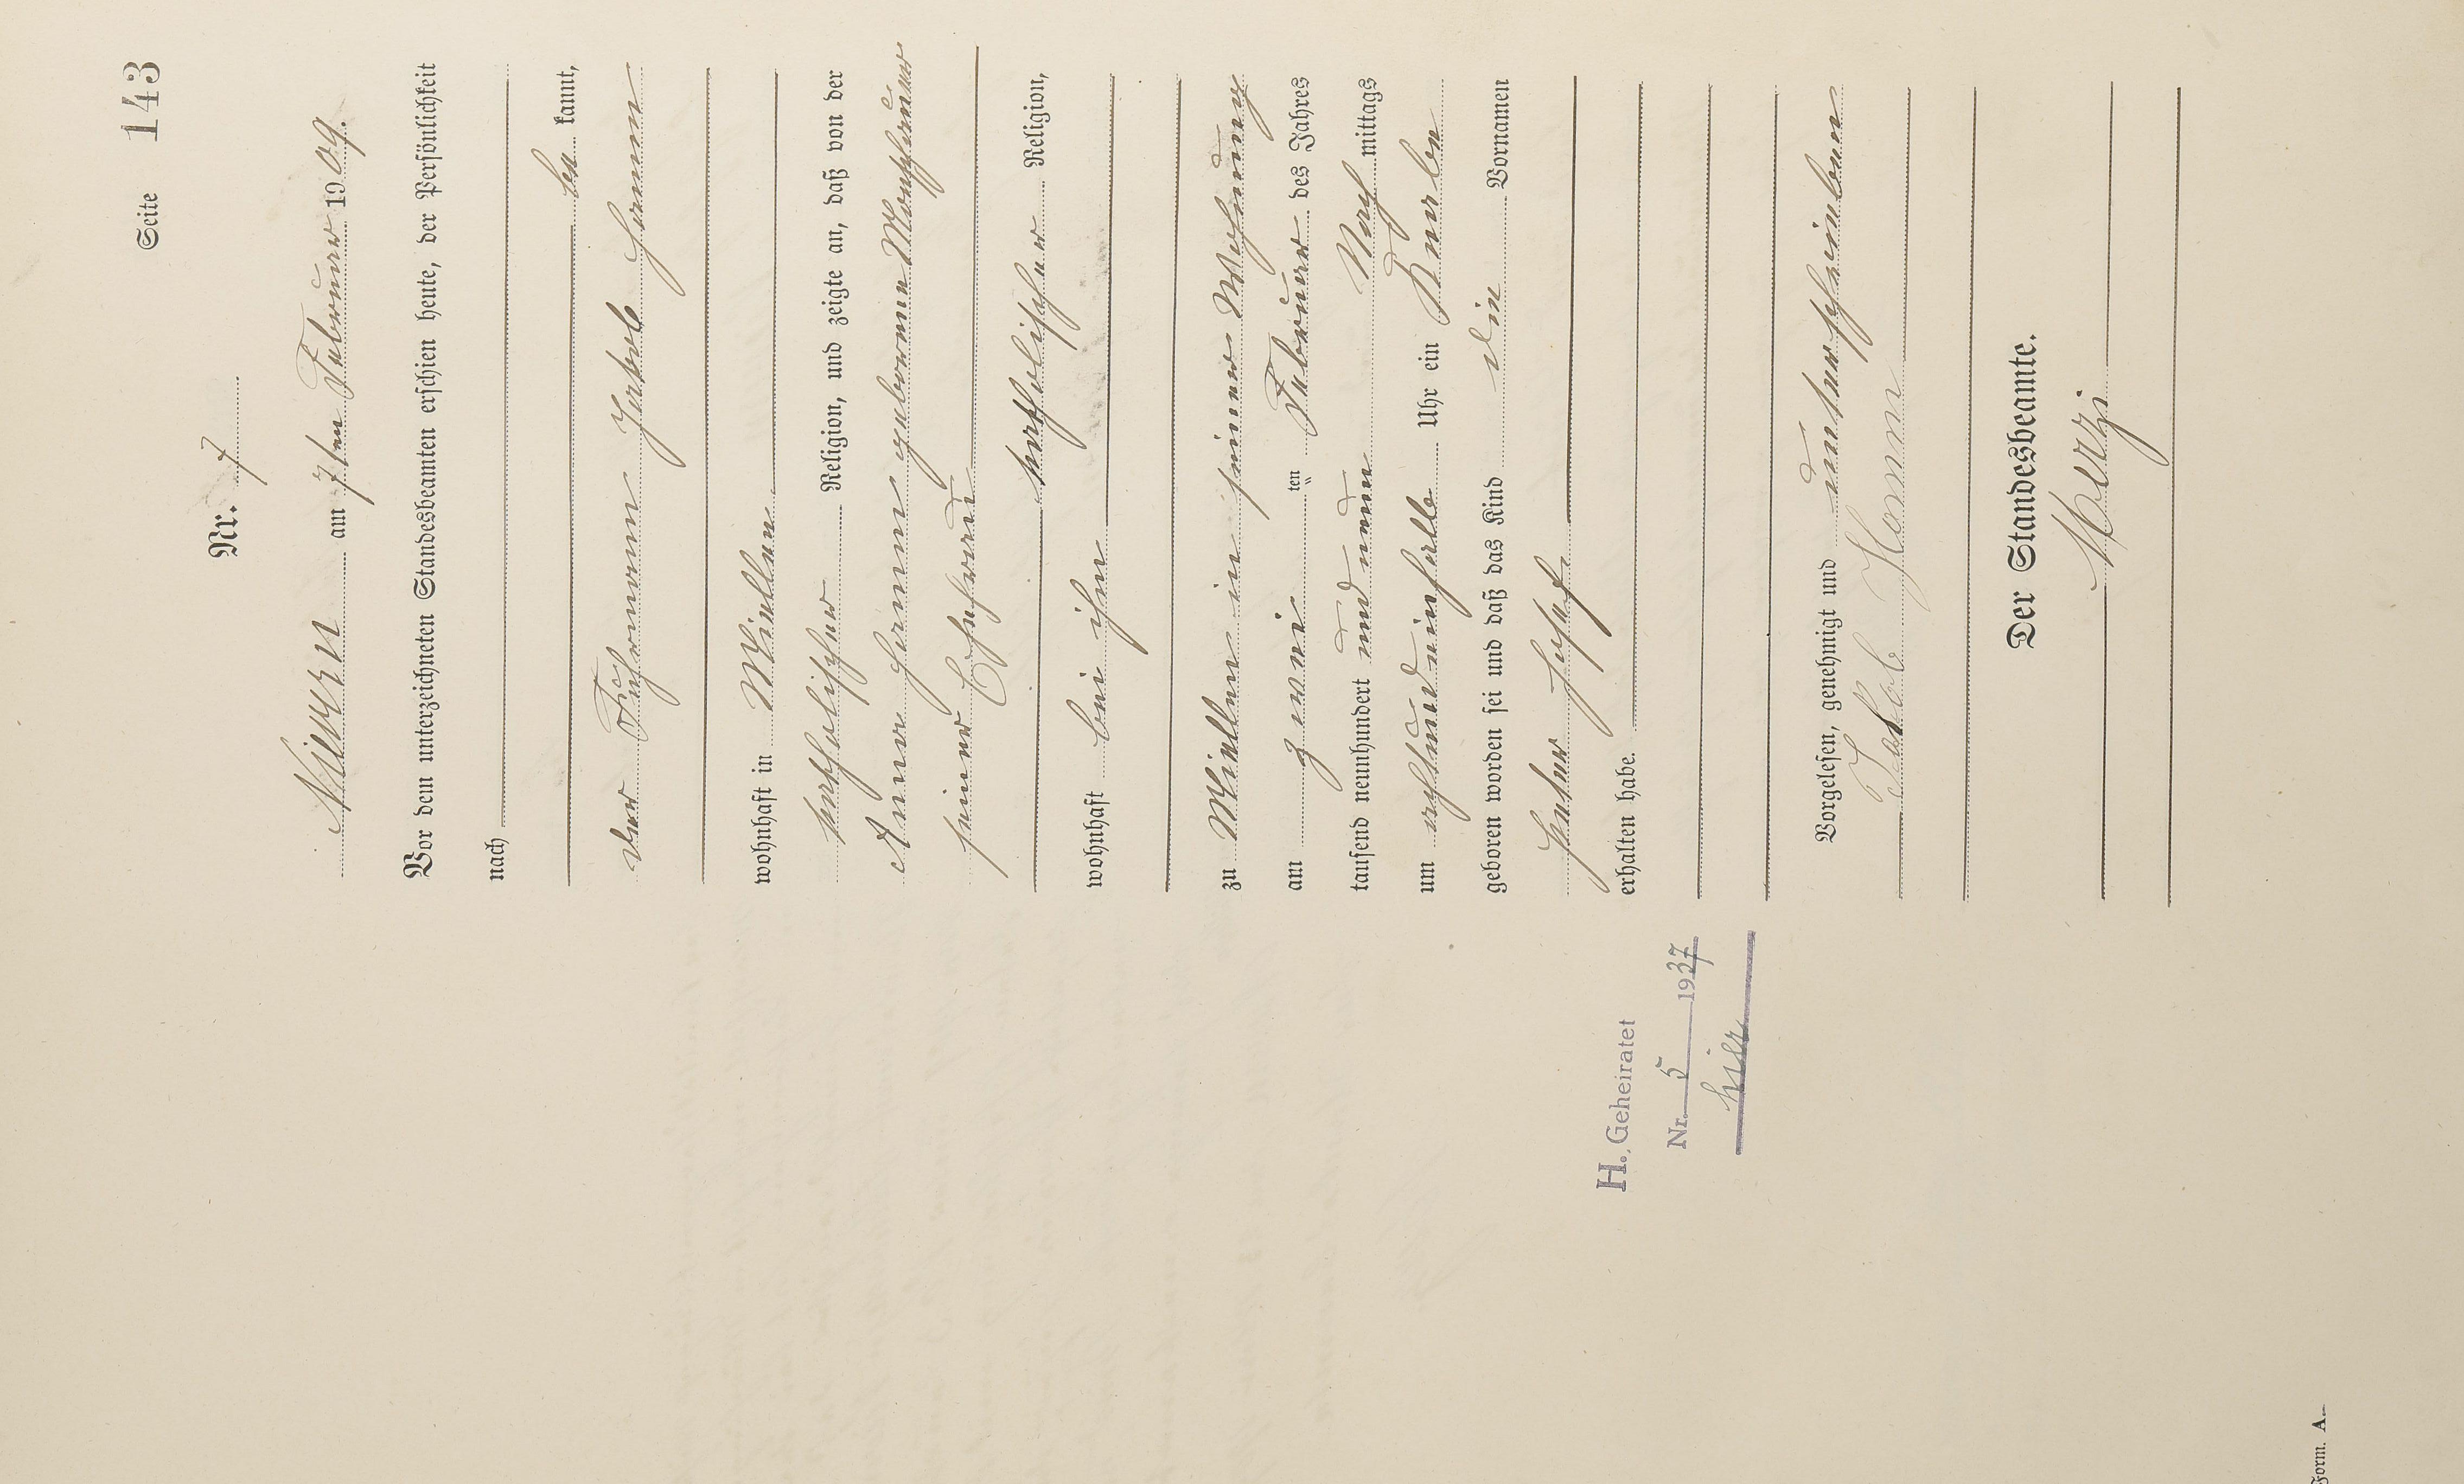 Seite 143
Nr. 7
Nievern am 7ten Februar 1909.
Vor dem unterzeichneten Standesbeamten erschien heute, der Persönlichkeit
nach
be kannt,
der Fuhrmann Jakob Homm
wohnhaft in Miellen
katholischer Religion, und zeigte an, daß von der
Anna Homm geborenen
seiner Ehefrau
katholischer Religion,
wohnhaft bei ihm
zu Miellen in seiner Wohnung
am zwei ten Februar des Jahres
tausend neunhundert und neun Nach mittags
um achtundeinhalb Uhr ein Knabe
geboren worden sei und daß das Kind die Vornamen
Peter Josef
erhalten habe.
Vorgelesen, genehmigt und unterschrieben
Jakob Homm
Der Standesbeamte.
H. Geheiratet
Nr. 5 1937
hier
Form. A.